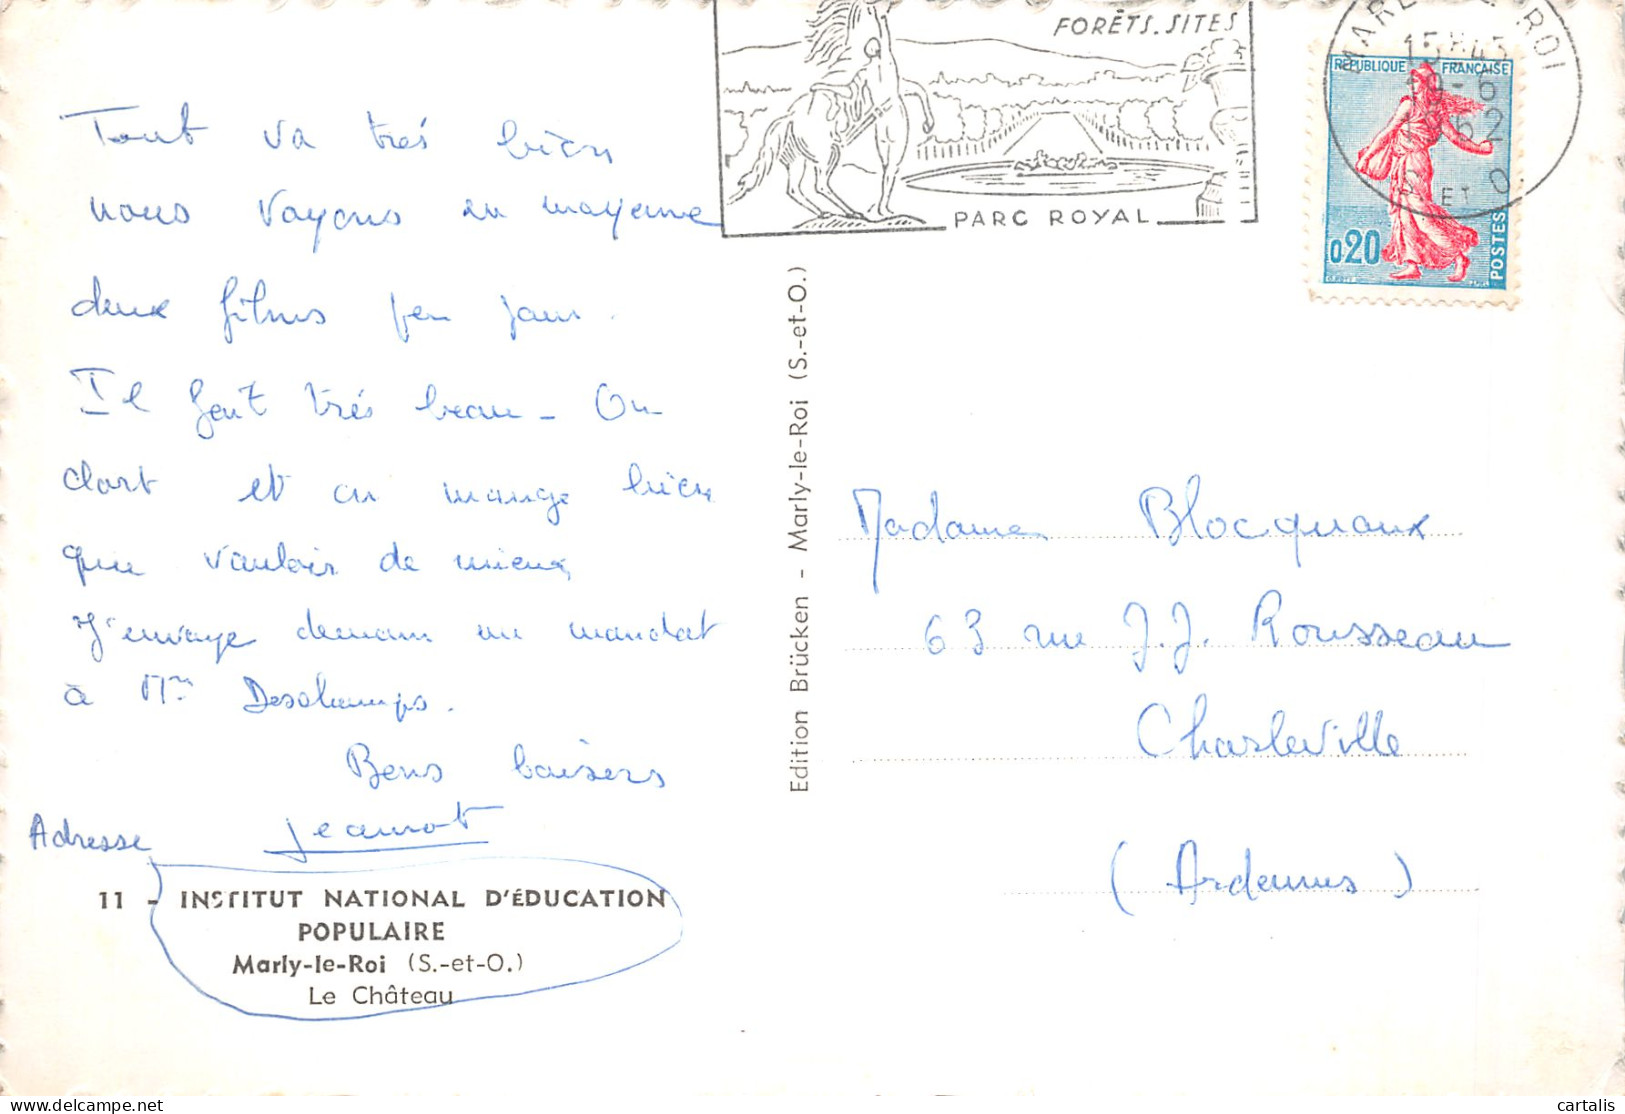 Tout va très bien
nous voyons en moyenne
deux films par jour.
Il fait très beau - On
dort et on mange bien
que vouloir de mieux
J'envoye demain un mandat
à Mme Deschamps.
Bons baisers
Jeannot
Adresse
11 - INSTITUT NATIONAL D'ÉDUCATION
POPULAIRE
Marly-le-Roi (S.-et-O.)
Le Château
Edition Brücken - Marly-le-Roi (S.-et-O.)
FORÊTS. SITES
PARC ROYAL
MARLY LE ROI
15 H 45
6
1962
S ET O
RÉPUBLIQUE FRANÇAISE
0.20
POSTES
Madame Blocquaux
63 rue J.J. Rousseau
Charleville
(Ardennes)
cartalis